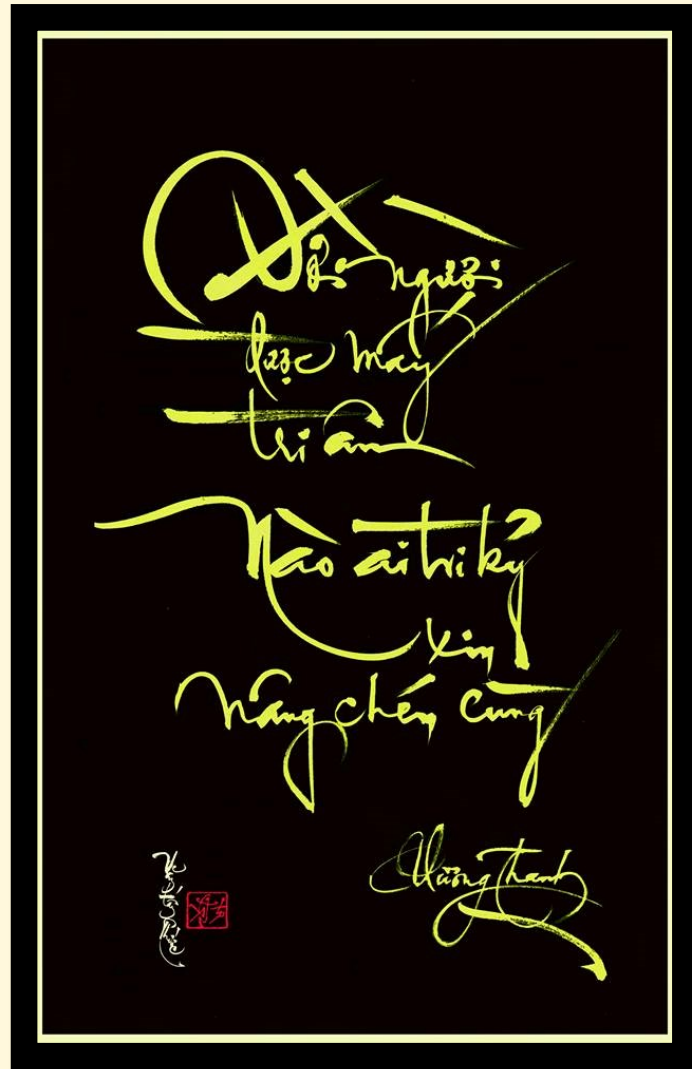 Đời người
được mấy
tri ân
Nào ai tri kỷ
xin
nâng chén cùng
Mường Thanh